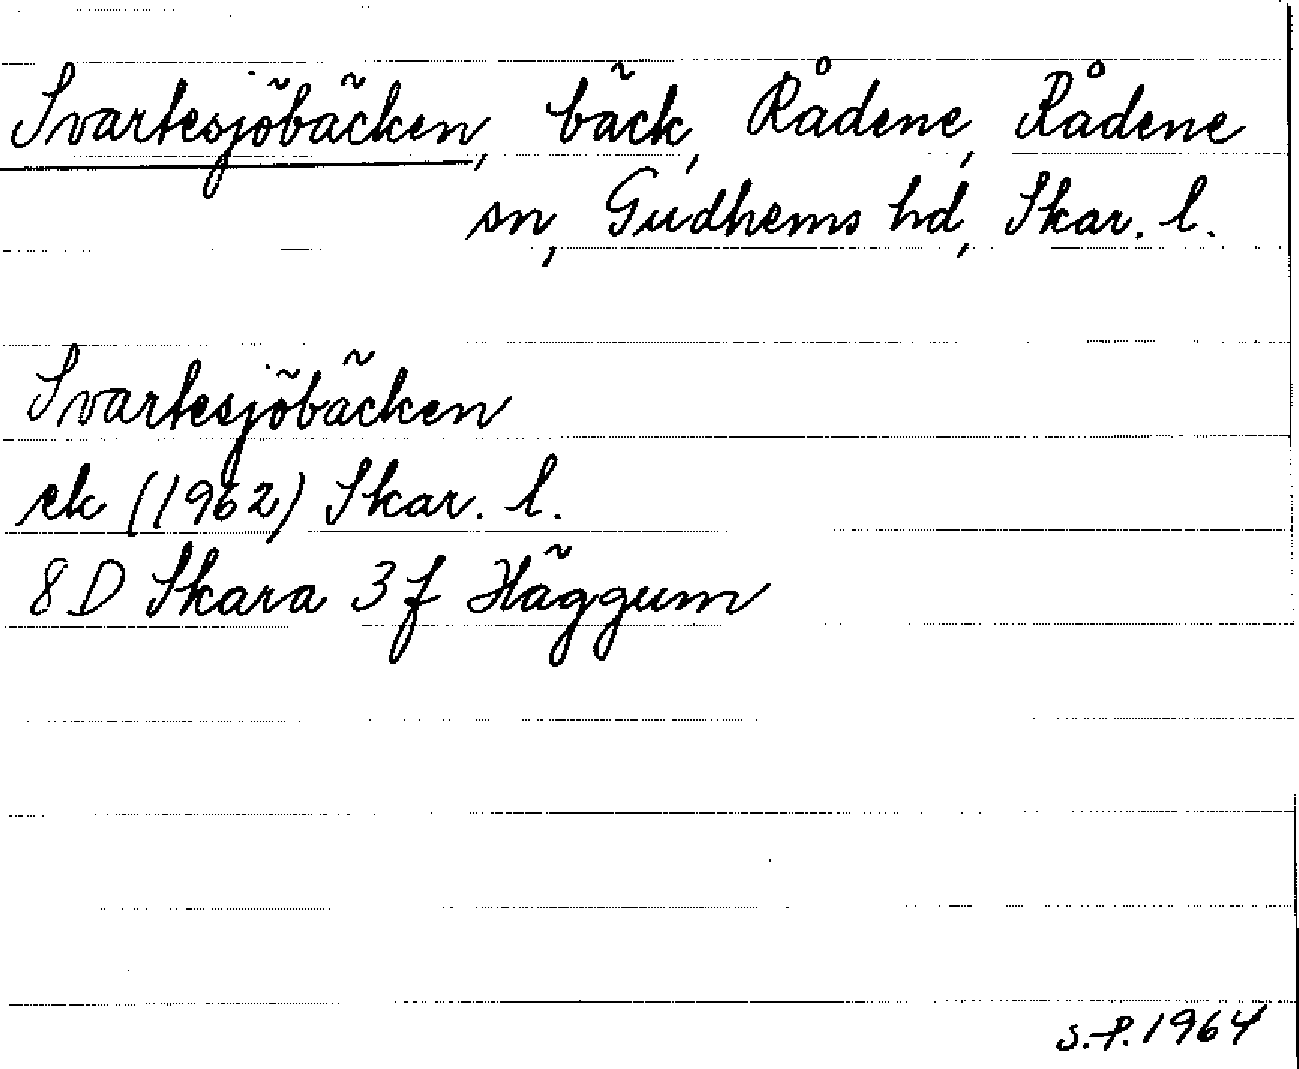 Svartesjöbäcken, bäck, Rådene, Rådene
sn, Gudhems hd, Skar. l.
Svartesjöbäcken
ek (1962) Skar. l.
8 D Skara 3 f Häggum
S.P. 1964